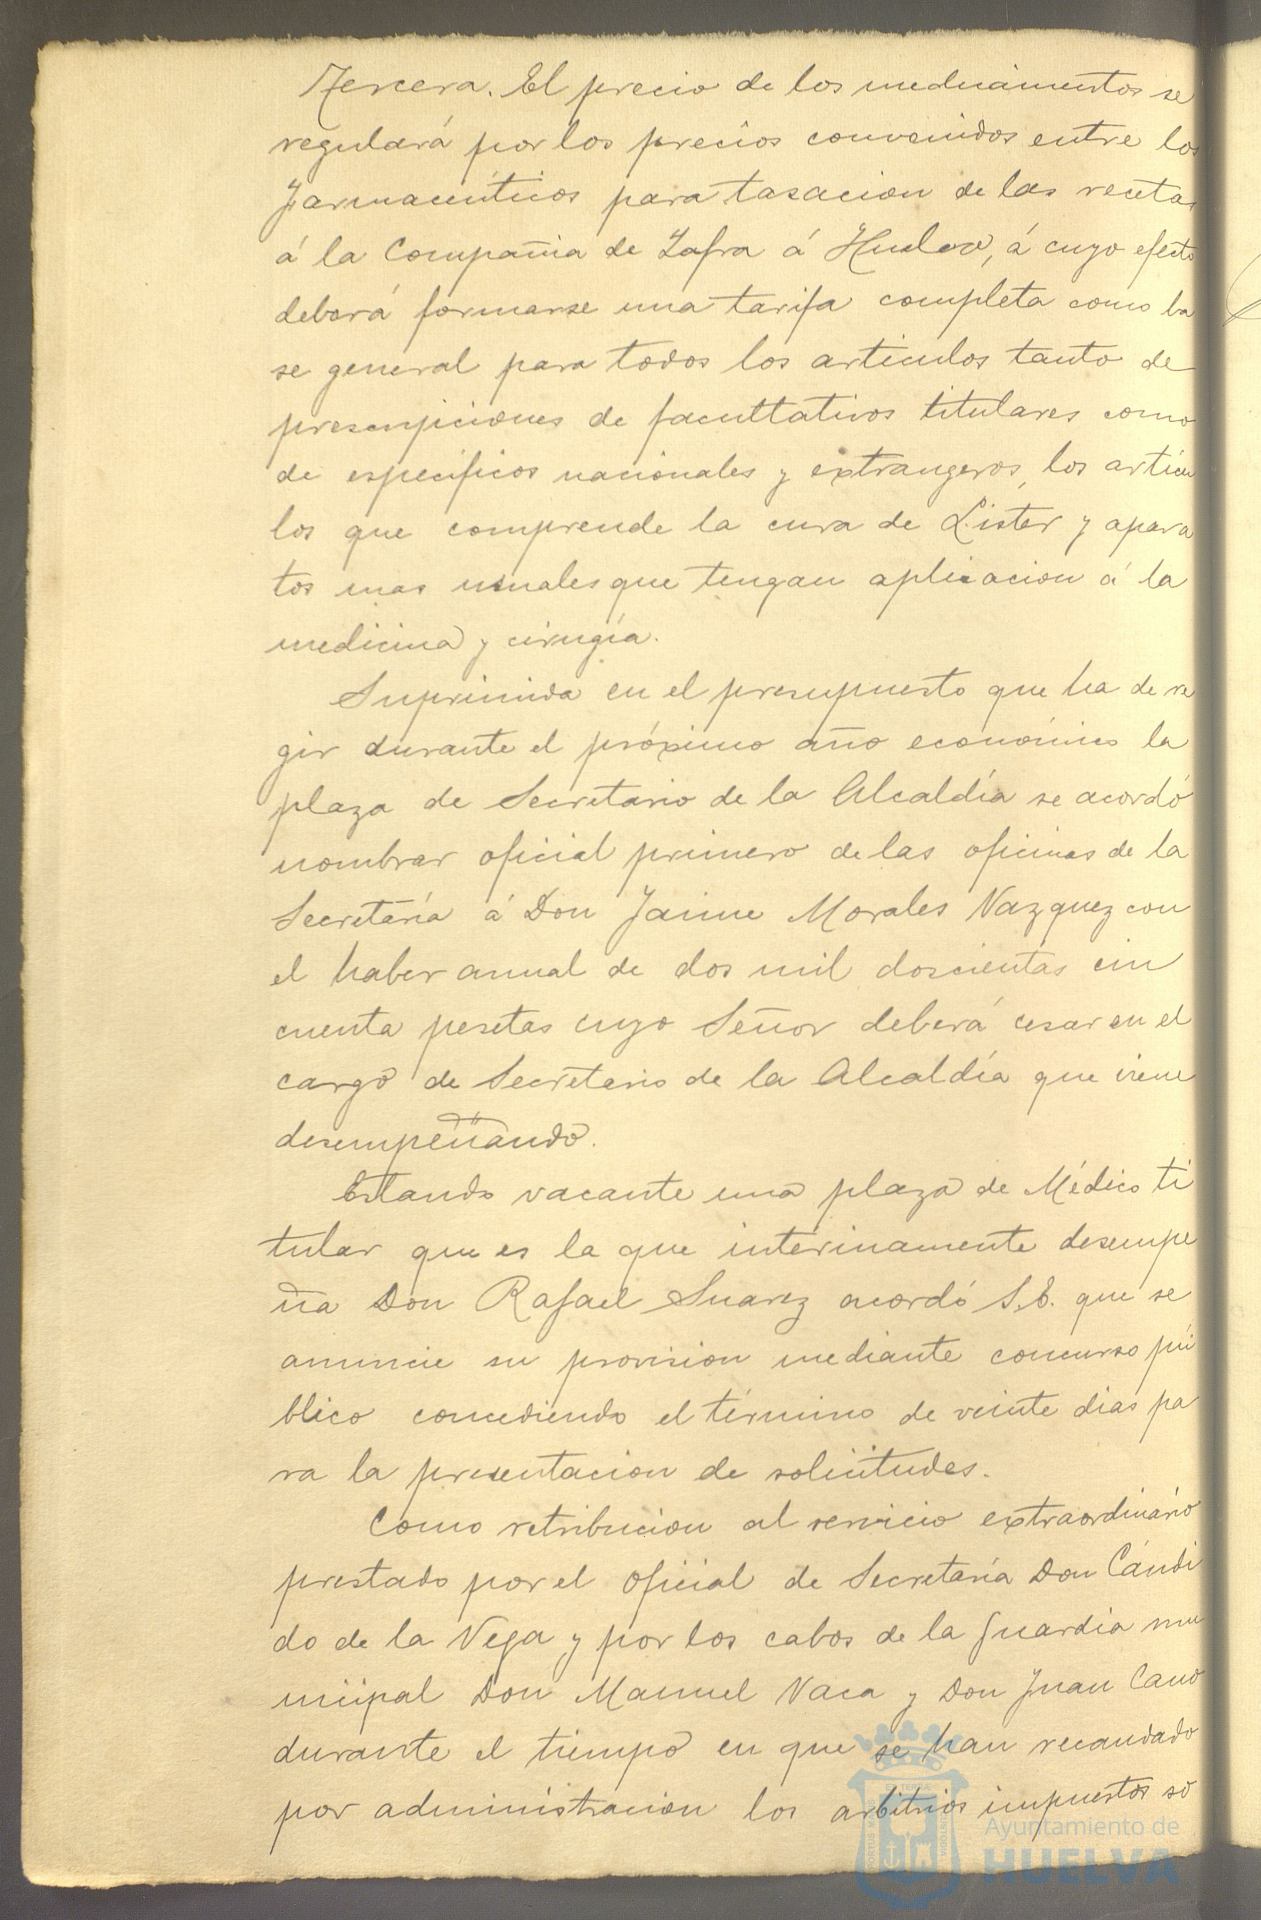 Tercera. El precio de los medicamentos se
regulará por los precios convenidos entre los
Farmacéuticos para tasacion de las recetas
á la Compañia de Zafra á Huelva, á cuyo efecto
deberá formarse una tarifa completa como ba
se general para todos los articulos tanto de
prescripciones de facultativos titulares como
de específicos nacionales y extrangeros, los articu
los que comprende la cura de Lister y apara
tos mas usuales que tengan aplicacion á la
medicina y cirugía.
Suprimida en el presupuesto que ha de re
gir durante el próximo año económico la
plaza de Secretario de la Alcaldía se acordó
nombrar oficial primero de las oficinas de la
Secretaría á Don Jaime Morales Vazquez con
el haber anual de dos mil doscientas cin
cuenta pesetas cuyo Señor deberá cesar en el
cargo de Secretario de la Alcaldía que viene
desempeñando.
Estando vacante una plaza de Médico ti
tular que es la que interinamente desempe
ña Don Rafael Suarez acordó S.E. que se
anuncie su provision mediante concurso pú
blico concediendo el término de veinte dias pa
ra la presentacion de solicitudes.
Como retribucion al servicio extraordinario
prestado por el oficial de Secretaría Don Cándi
do de la Vega y por los cabos de la Guardia mu
nicipal Don Manuel Vaca y Don Juan Cano
durante el tiempo en que se han recaudado
por administracion los arbitrios impuestos so
Ayuntamiento de
HUELVA